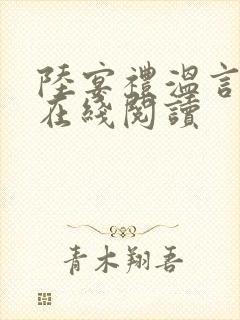 陸宴禮溫言
在綫閱讀
青木翔吾